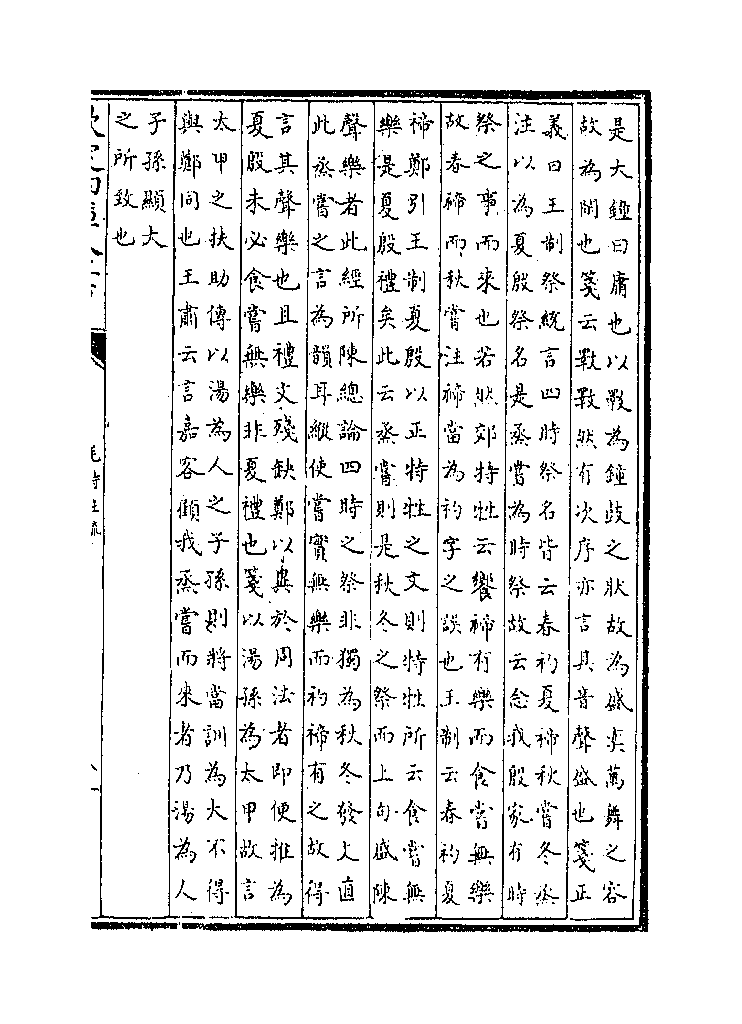 是大鐘曰庸也以斁為鍾鼓之狀故為盛奕萬舞之容
故為閑也箋云斁斁然有次序亦言其音聲盛也箋正
義曰王制祭統言四時祭名皆云春礿夏禘秋嘗冬烝
注以為夏殷祭名是烝嘗為時祭故云念我殷家有時
祭之事而來也若然郊特牲云饗禘有樂而食嘗無樂
故春禘而秋嘗注禘當為礿字之誤也王制云春礿夏
禘鄭引王制夏殷以正特牲之文則特牲所云食嘗無
樂是夏殷禮矣此云烝嘗則是秋冬之祭而上句盛陳
聲樂者此經所陳總論四時之祭非獨為秋冬發文直
此烝嘗之言為韻耳縱使嘗實無樂而礿禘有之故得
言其聲樂也且禮文殘缺鄭以異於周法者即便推為
夏殷未必食嘗無樂非夏禮也箋以湯孫為太甲故言
太甲之扶助傳以湯為人之子孫則將當訓為大不得
與鄭同也王肅云言嘉客顧我烝嘗而來者乃湯為人
子孫顯大
之所致也
毛詩注疏